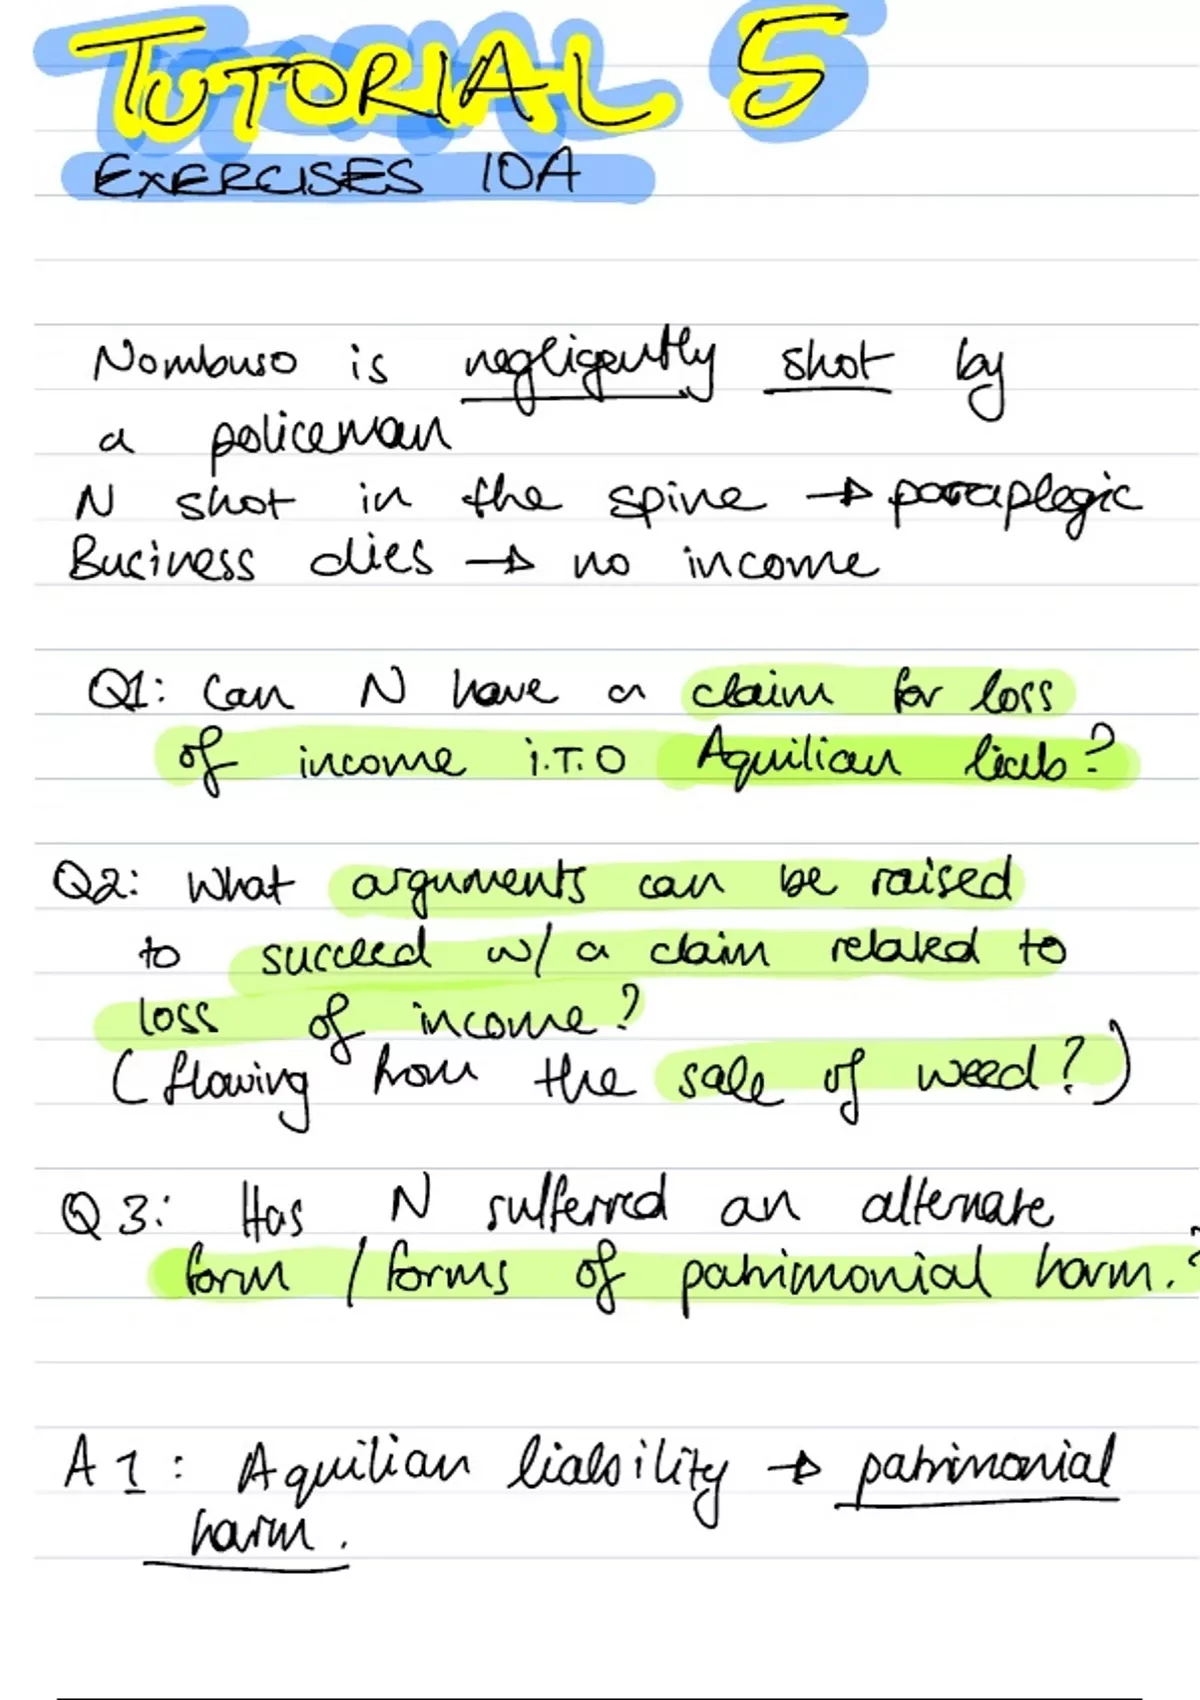 TUTORIAL 5
EXERCISES 10A
Nombuso is negligently shot by
a policeman
N shot in the spine → paraplegic
Business dies → no income
Q1: Can N have a claim for loss
of income i.T.O Aquilian liab?
Q2: What arguments can be raised
to succeed w/ a claim related to
loss of income?
(flowing from the sale of weed?)
Q3: Has N sufferred an alternate
form / forms of patrimonial harm.?
A1: Aquilian liability → patrimonial
harm.